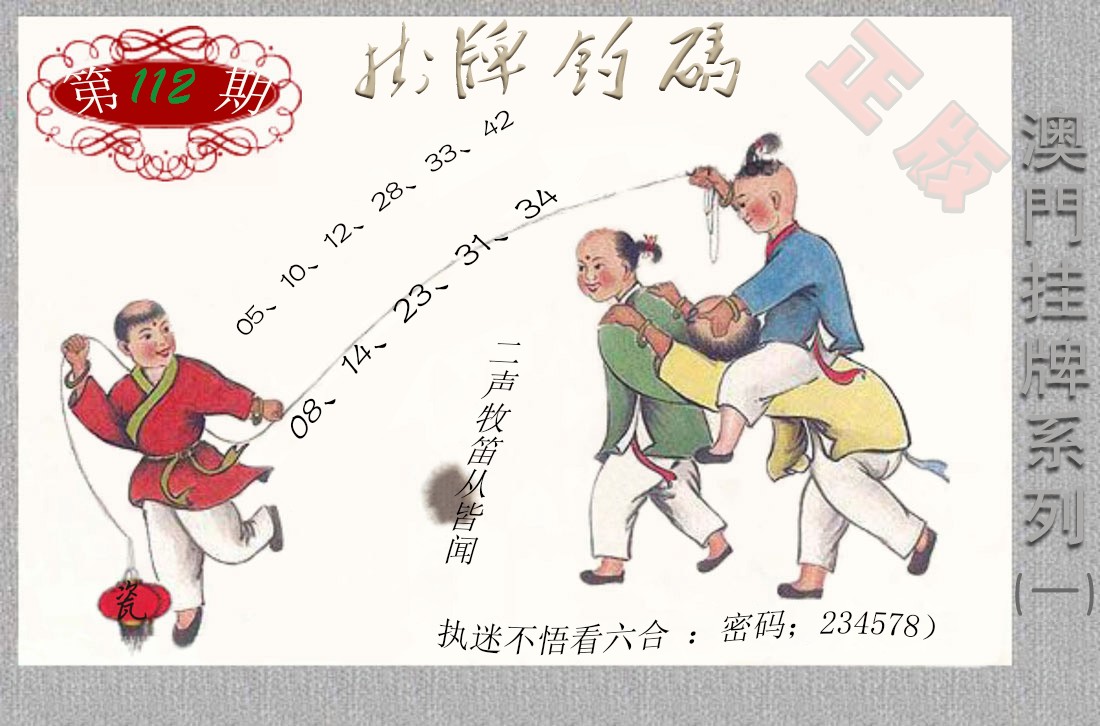 第112期
掛牌钓碼
正版
05、10、12、28、33、42
08、14、23、31、34
二声牧笛从皆闻
瓷
执迷不悟看六合：密码；234578）
澳門挂牌系列(一)